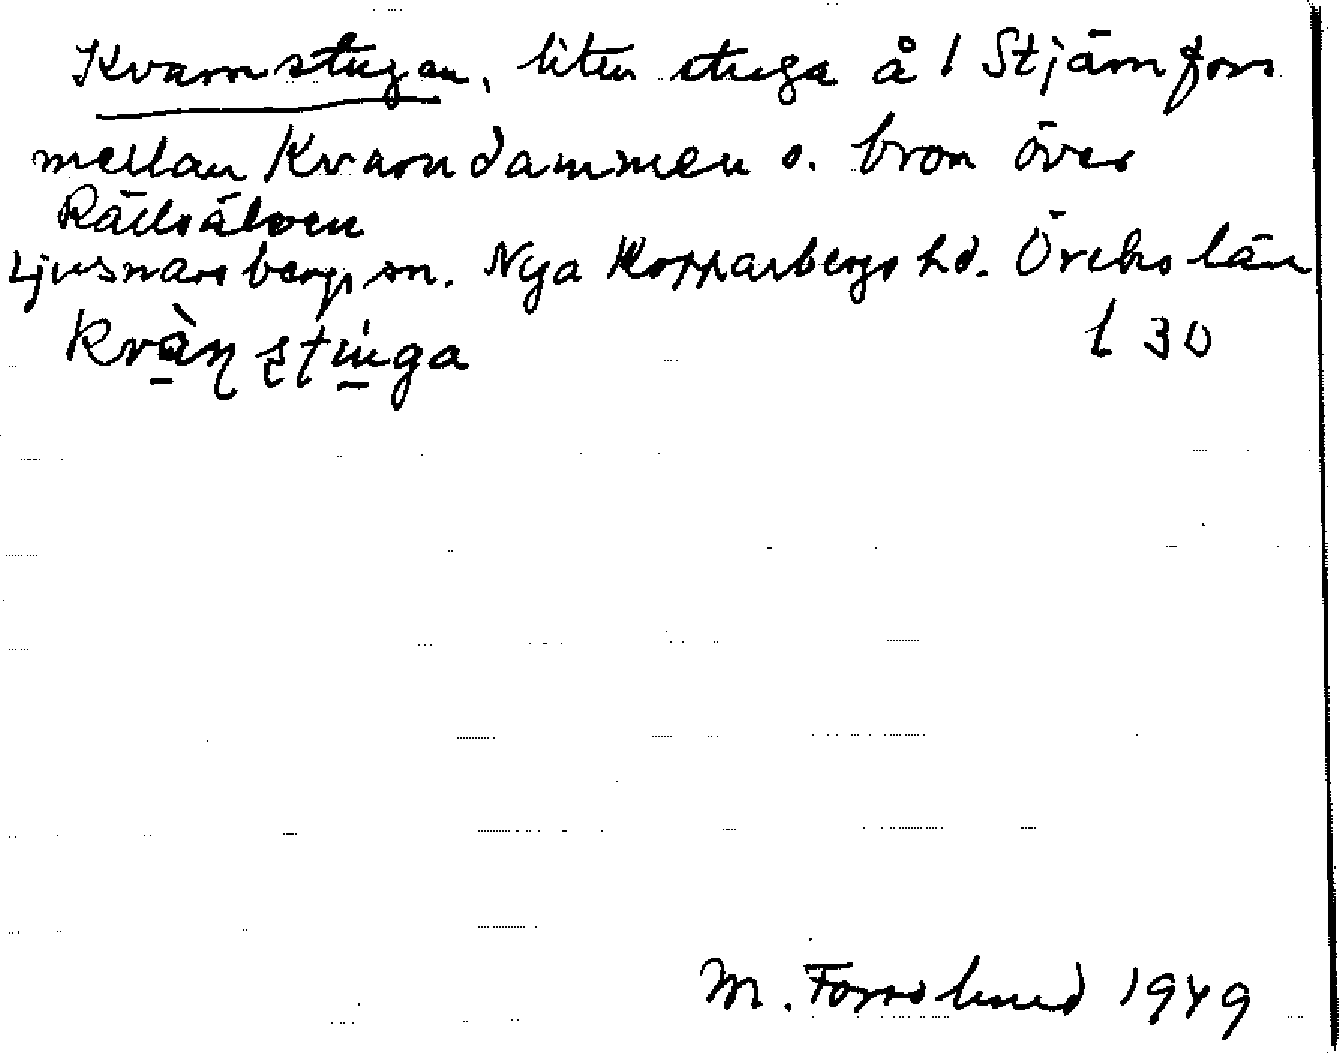 Kvarnstugan, liten stuga å 1 Stjärnfors
mellan Kvarndammen o. bron över
Rällsälven
Ljusnarsbergs sn. Nya Kopparbergs hd. Örebro län
l 30
M. Forslund 1949